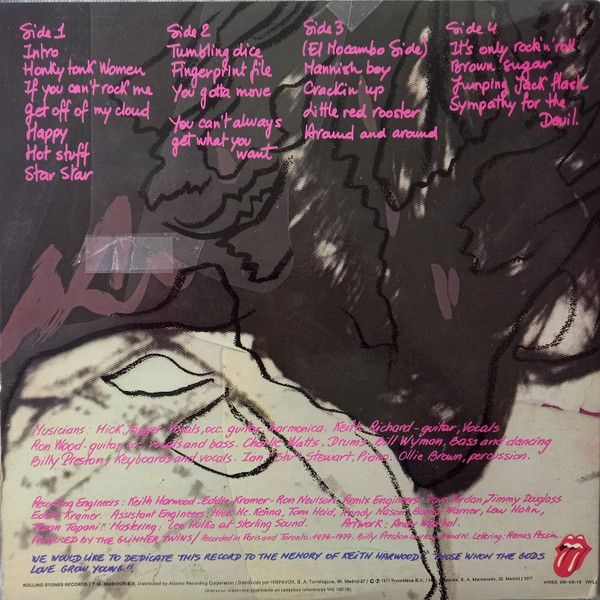 Side 1
Intro
Honky tonk Women
If you can't rock me
get off of my cloud
Happy
Hot stuff
Star Star
Side 2
Tumbling dice
Fingerprint file
You gotta move
You can't always
get what you
want
Side 3
(El Mocambo Side)
Mannish boy
Crackin' up
Little red rooster
Around and around
Side 4
It's only rock'n'roll
Brown sugar
Jumping Jack flash
Sympathy for the
Devil.
Musicians: Mick Jagger vocals, occ. guitar, harmonica. Keith Richard-guitar, vocals
Ron Wood-guitar vocals and bass. Charlie Watts. Drums. Bill Wyman, Bass and dancing
Billy Preston, Keyboards and vocals. Ian Stewart, Piano. Ollie Brown, percussion.
Recording Engineers: Keith Harwood-Eddie Kramer-Ron Nevison. Remix Engineers: Jordan, Jimmy Douglass
Eddie Kramer. Assistant Engineers: Mick Mc. Kenna, Tom Heid, Randy Mason, Warner, Lew Hahn,
Tapani. Mastering: Lee Hulko at Sterling Sound. Artwork: Andy Warhol.
PRODUCED BY THE GLIMMER TWINS/ Recorded in Paris and Toronto 1976-1977. Billy Preston Lettering: Francis Pessin
WE WOULD LIKE TO DEDICATE THIS RECORD TO THE MEMORY OF KEITH HARWOOD THOSE WHOM THE GODS
LOVE GROW YOUNG!!
ROLLING STONES RECORDS / Distributed by Atlantic Recording Corporation / Distribuido por HISPAVOX, S. A. Torrelaguna, Madrid-27 / 1977 Promotone B.V. / Madrid / 1977